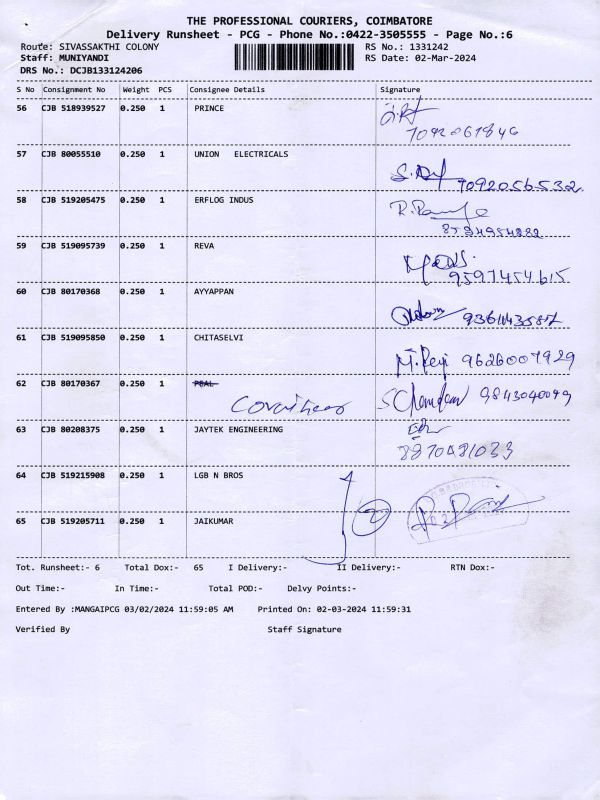 THE PROFESSIONAL COURIERS, COIMBATORE
Delivery Runsheet - PCG - Phone No.:0422-3505555 - Page No.:6
Route: SIVASSAKTHI COLONY RS No.: 1331242
Staff: MUNIYANDI RS Date: 02-Mar-2024
DRS No.: DCJB133124206
S No Consignment No Weight PCS Consignee Details Signature
56 CJB 518939527 0.250 1 PRINCE
7092061846
57 CJB 80055510 0.250 1 UNION ELECTRICALS
7092056532
58 CJB 519205475 0.250 1 ERFLOG INDUS
59 CJB 519095739 0.250 1 REVA
9597454615
60 CJB 80170368 0.250 1 AYYAPPAN
61 CJB 519095850 0.250 1 CHITASELVI
9626007929
62 CJB 80170367 0.250 1 PEAL
9843040099
63 CJB 80208375 0.250 1 JAYTEK ENGINEERING
64 CJB 519215908 0.250 1 LGB N BROS
2
65 CJB 519205711 0.250 1 JAIKUMAR
Tot. Runsheet:- 6 Total Dox:- 65 I Delivery:- II Delivery:- RTN Dox:-
Out Time:- In Time:- Total POD:- Delvy Points:-
Entered By :MANGAIPCG 03/02/2024 11:59:05 AM Printed On: 02-03-2024 11:59:31
Verified By Staff Signature